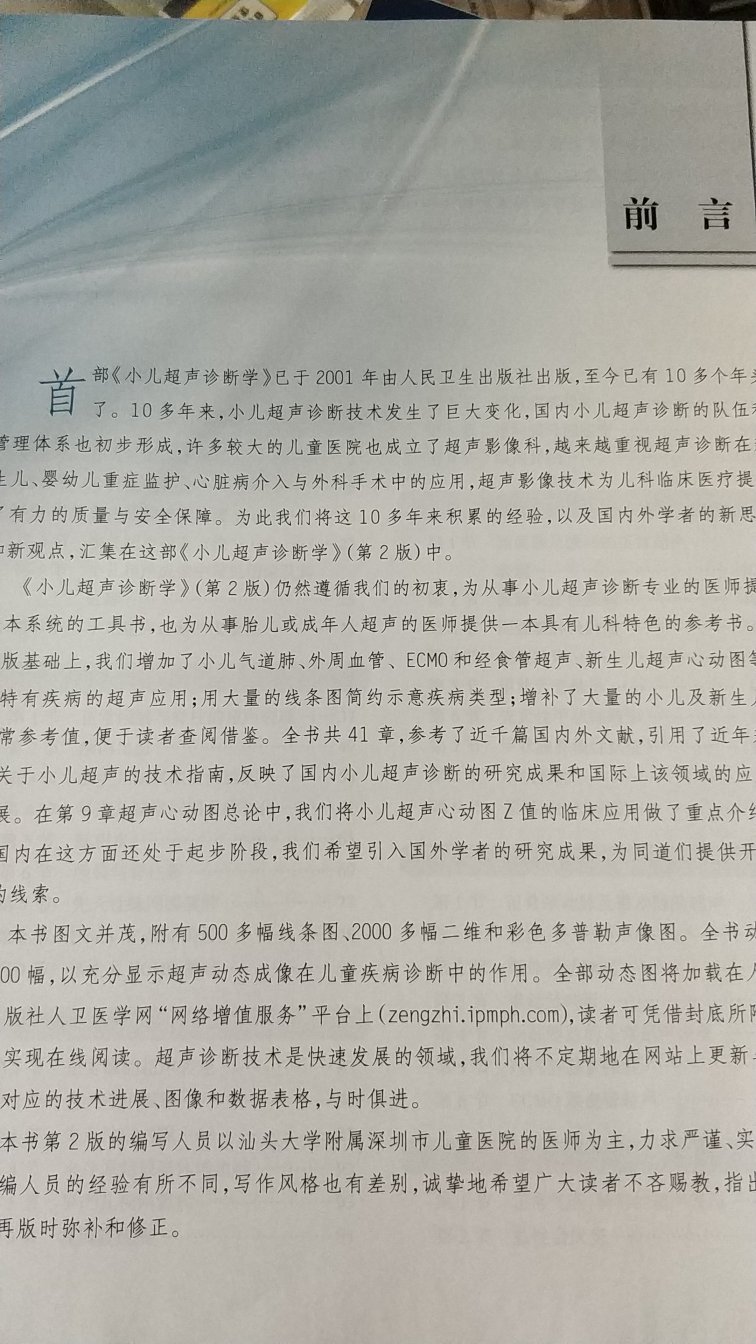 前言
首部《小儿超声诊断学》已于 2001 年由人民卫生出版社出版,至今已有 10 多个年
了。10 多年来,小儿超声诊断技术发生了巨大变化,国内小儿超声诊断的队伍
管理体系也初步形成,许多较大的儿童医院也成立了超声影像科,越来越重视超声诊断在
生儿、婴幼儿重症监护、心脏病介入与外科手术中的应用,超声影像技术为儿科临床医疗提
了有力的质量与安全保障。为此我们将这 10 多年来积累的经验,以及国内外学者的新思
和新观点,汇集在这部《小儿超声诊断学》(第 2 版)中。
《小儿超声诊断学》(第 2 版)仍然遵循我们的初衷,为从事小儿超声诊断专业的医师提
本系统的工具书,也为从事胎儿或成年人超声的医师提供一本具有儿科特色的参考书。
版基础上,我们增加了小儿气道肺、外周血管、ECMO 和经食管超声、新生儿超声心动图等
特有疾病的超声应用;用大量的线条图简约示意疾病类型;增补了大量的小儿及新生
常参考值,便于读者查阅借鉴。全书共 41 章,参考了近千篇国内外文献,引用了近年
关于小儿超声的技术指南,反映了国内小儿超声诊断的研究成果和国际上该领域的应
展。在第 9 章超声心动图总论中,我们将小儿超声心动图 Z 值的临床应用做了重点介绍
国内在这方面还处于起步阶段,我们希望引入国外学者的研究成果,为同道们提供开
的线索。
本书图文并茂,附有 500 多幅线条图、2000 多幅二维和彩色多普勒声像图。全书动
00 幅,以充分显示超声动态成像在儿童疾病诊断中的作用。全部动态图将加载在人
版社人卫医学网“网络增值服务”平台上(zengzhi.ipmph.com),读者可凭借封底所附
实现在线阅读。超声诊断技术是快速发展的领域,我们将不定期地在网站上更新
对应的技术进展、图像和数据表格,与时俱进。
本书第 2 版的编写人员以汕头大学附属深圳市儿童医院的医师为主,力求严谨、实
编人员的经验有所不同,写作风格也有差别,诚挚地希望广大读者不吝赐教,指出
再版时弥补和修正。